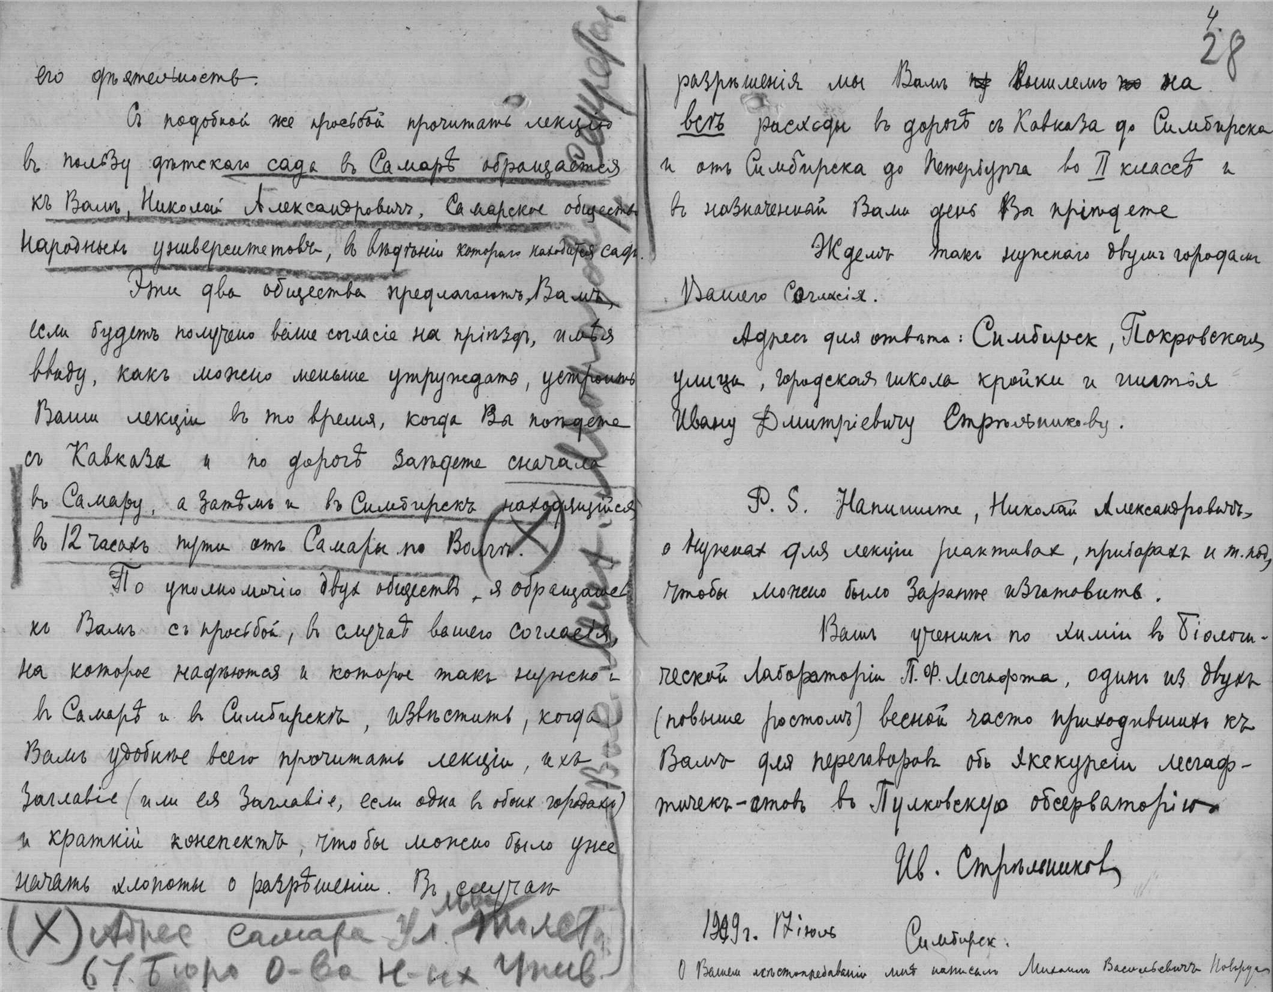 его дѣятельность.
Съ подобной же просьбой прочитать лекцію
въ пользу дѣтскаго сада въ Самарѣ обращается
къ Вамъ, Николай Александровичъ, Самарское общество
Народныхъ университетовъ, въ вѣдѣніи котораго находится садъ.
Эти два общества предлагаютъ Вамъ,
если будетъ получено ваше согласіе на пріѣздъ, имѣя
ввиду, какъ можно меньше утруждать, устроить
Ваши лекціи въ то время, когда Вы поѣдете
съ Кавказа и по дорогѣ заѣдете сначала
въ Самару, а затѣмъ и въ Симбирскъ находящійся
въ 12 часахъ пути отъ Самары по Волгѣ. (X)
По уполномочію двух обществъ, я обращаюсь
къ Вамъ съ просьбой, въ случаѣ вашего согласія,
на которое надѣются и которое такъ нужно и
въ Самарѣ и въ Симбирскѣ, извѣстить, когда
Вамъ удобнѣе всего прочитать лекціи, ихъ
Заглавіе (или ея Заглавіе, если одна въ обоих городахъ)
и краткій конспектъ, чтобы можно было уже
начать хлопоты о разрѣшеніи. Въ случаѣ
(X) Адрес Самара Ул. Льва Толст.
67. Бюро О-ва Н-ых Унив.
4.
28
разрѣшенія мы Вамъ вышлемъ на
всѣ расходы въ дорогѣ съ Кавказа до Симбирска
и отъ Симбирска до Петербурга во II классѣ и
въ назначенный Вами день Вы пріѣдете
Ждемъ такъ нужнаго двумъ городамъ
Вашего Согласія.
Адресъ для отвѣта: Симбирск, Покровская
улица, городская школа кройки и шитья
Ивану Дмитріевичу Стрѣльникову.
P. S. Напишите, Николай Александровичъ,
о нужных для лекціи реактивах, приборахъ и т. под.,
чтобы можно было заранѣе изготовить.
Вашъ ученикъ по химіи въ Біологи-
ческой Лабораторіи П. Ф. Лесгафта, одинъ из двухъ
(повыше ростомъ) весной часто приходившихъ къ
Вамъ для переговоровъ объ экскурсіи лесгаф-
тичек-стовъ въ Пулковскую обсерваторію
Ив. Стрѣльников
1909 г. 17 іюль Симбирск.
О Вашем мѣстопребываніи мнѣ написалъ Михаилъ Васильевичъ